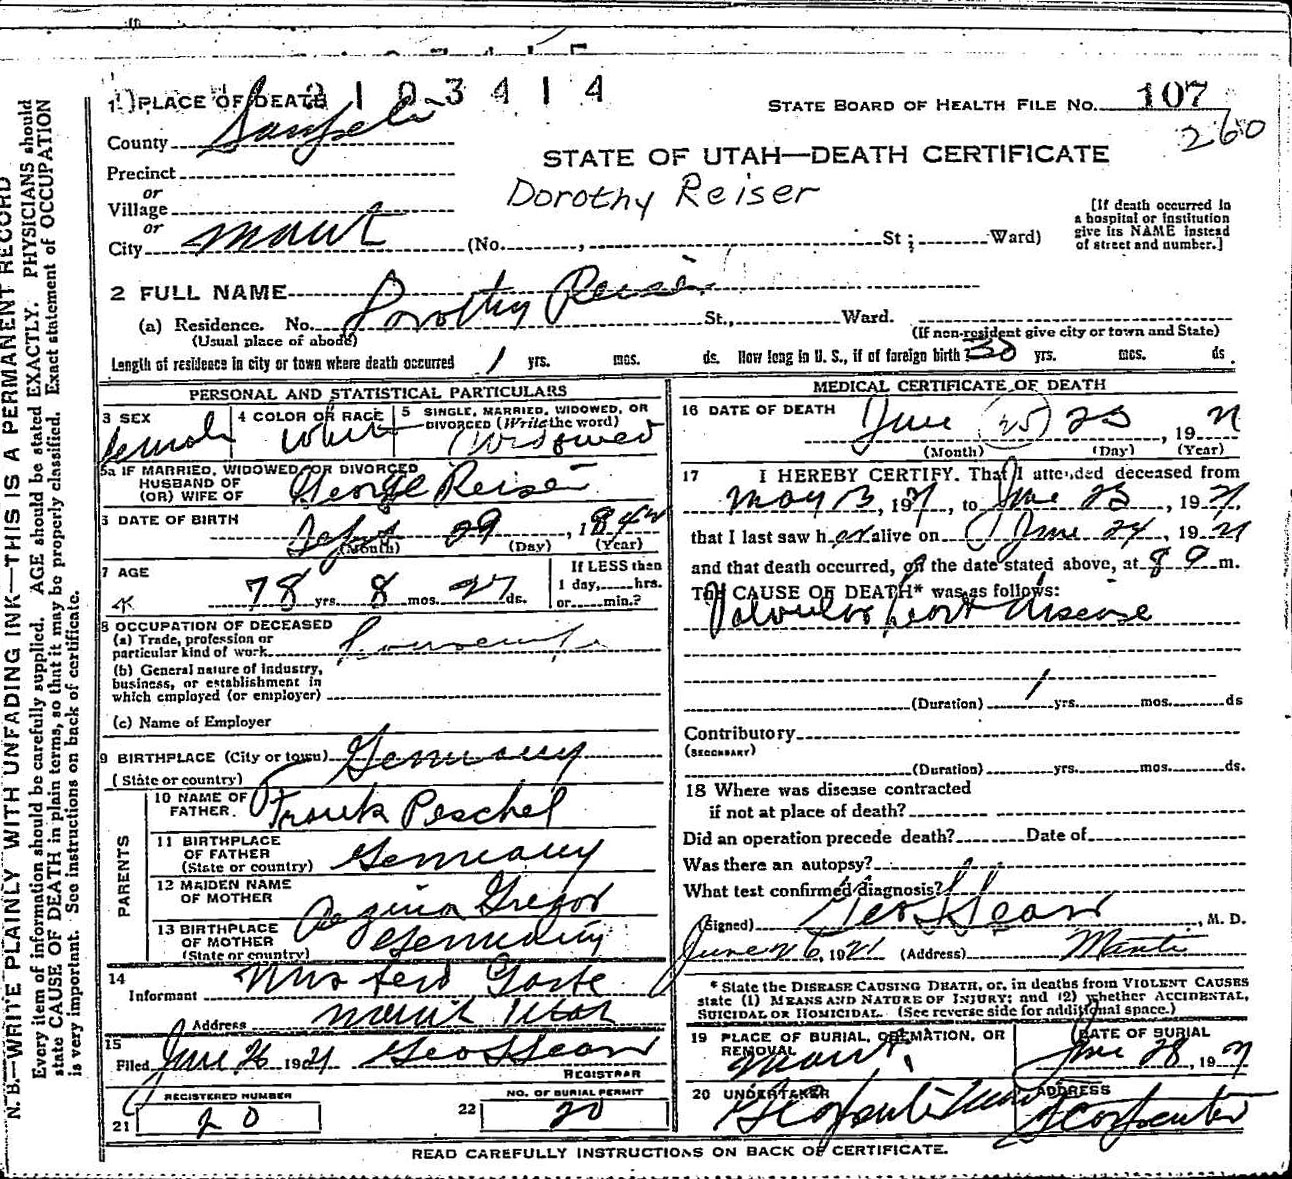 N. B.—WRITE PLAINLY WITH UNFADING INK—THIS IS A PERMANENT RECORD
Every item of information should be carefully supplied. AGE should be stated EXACTLY. PHYSICIANS should
state CAUSE OF DEATH in plain terms, so that it may be properly classified. Exact statement of OCCUPATION
is very important. See instructions on back of certificate.
1 PLACE OF DEATH 2103414
STATE BOARD OF HEALTH FILE No. 107
260
County Sanpete
STATE OF UTAH—DEATH CERTIFICATE
Precinct
or
Village
Dorothy Reiser
[If death occurred in
a hospital or institution
give its NAME instead
of street and number.]
or
City Manti (No. , St ; Ward)
2 FULL NAME Dorothy Reiser
(a) Residence. No. St., Ward.
(Usual place of abode) (If non-resident give city or town and State)
Length of residence in city or town where death occurred 1 yrs. mos. ds. How long in U. S., if of foreign birth? 30 yrs. mos. ds.
PERSONAL AND STATISTICAL PARTICULARS
3 SEX Female
4 COLOR OR RACE White
5 SINGLE, MARRIED, WIDOWED, OR
DIVORCED (Write the word)
Widowed
5a IF MARRIED, WIDOWED, OR DIVORCED
HUSBAND OF
(OR) WIFE OF George Reiser
6 DATE OF BIRTH
Sept 29, 1842
(Month) (Day) (Year)
7 AGE
78 yrs. 8 mos. 27 ds.
If LESS than
1 day, hrs.
or min.?
8 OCCUPATION OF DECEASED
(a) Trade, profession or
particular kind of work Housewife
(b) General nature of industry,
business, or establishment in
which employed (or employer)
(c) Name of Employer
9 BIRTHPLACE (City or town) Germany
(State or country)
PARENTS
10 NAME OF
FATHER. Frank Peschel
11 BIRTHPLACE
OF FATHER
(State or country) Germany
12 MAIDEN NAME
OF MOTHER Regina Gregor
13 BIRTHPLACE
OF MOTHER
(State or country) Germany
14
Informant Mrs
Address Manti Utah
15
Filed June 26 1921 Geo L Sears
REGISTRAR
REGISTERED NUMBER
21 20
NO. OF BURIAL PERMIT
22 20
MEDICAL CERTIFICATE OF DEATH
16 DATE OF DEATH
June (25) 25, 1921
(Month) (Day) (Year)
17 I HEREBY CERTIFY. That I attended deceased from
May 13, 1921, to June 25, 1921,
that I last saw her alive on June 24, 1921
and that death occurred, on the date stated above, at 8 a m.
The CAUSE OF DEATH* was as follows:
Valvular heart disease
(Duration) 1 yrs. mos. ds
Contributory
(SECONDARY)
(Duration) yrs. mos. ds.
18 Where was disease contracted
if not at place of death?
Did an operation precede death? Date of
Was there an autopsy?
What test confirmed diagnosis?
(Signed) Geo L Sears, M. D.
June 26, 1921 (Address) Manti
* State the DISEASE CAUSING DEATH, or, in deaths from VIOLENT CAUSES
state (1) MEANS AND NATURE OF INJURY; and (2) whether ACCIDENTAL,
SUICIDAL OR HOMICIDAL. (See reverse side for additional space.)
19 PLACE OF BURIAL, CREMATION, OR
REMOVAL
Manti
DATE OF BURIAL
June 28, 1921
20 UNDERTAKER
ADDRESS
READ CAREFULLY INSTRUCTIONS ON BACK OF CERTIFICATE.